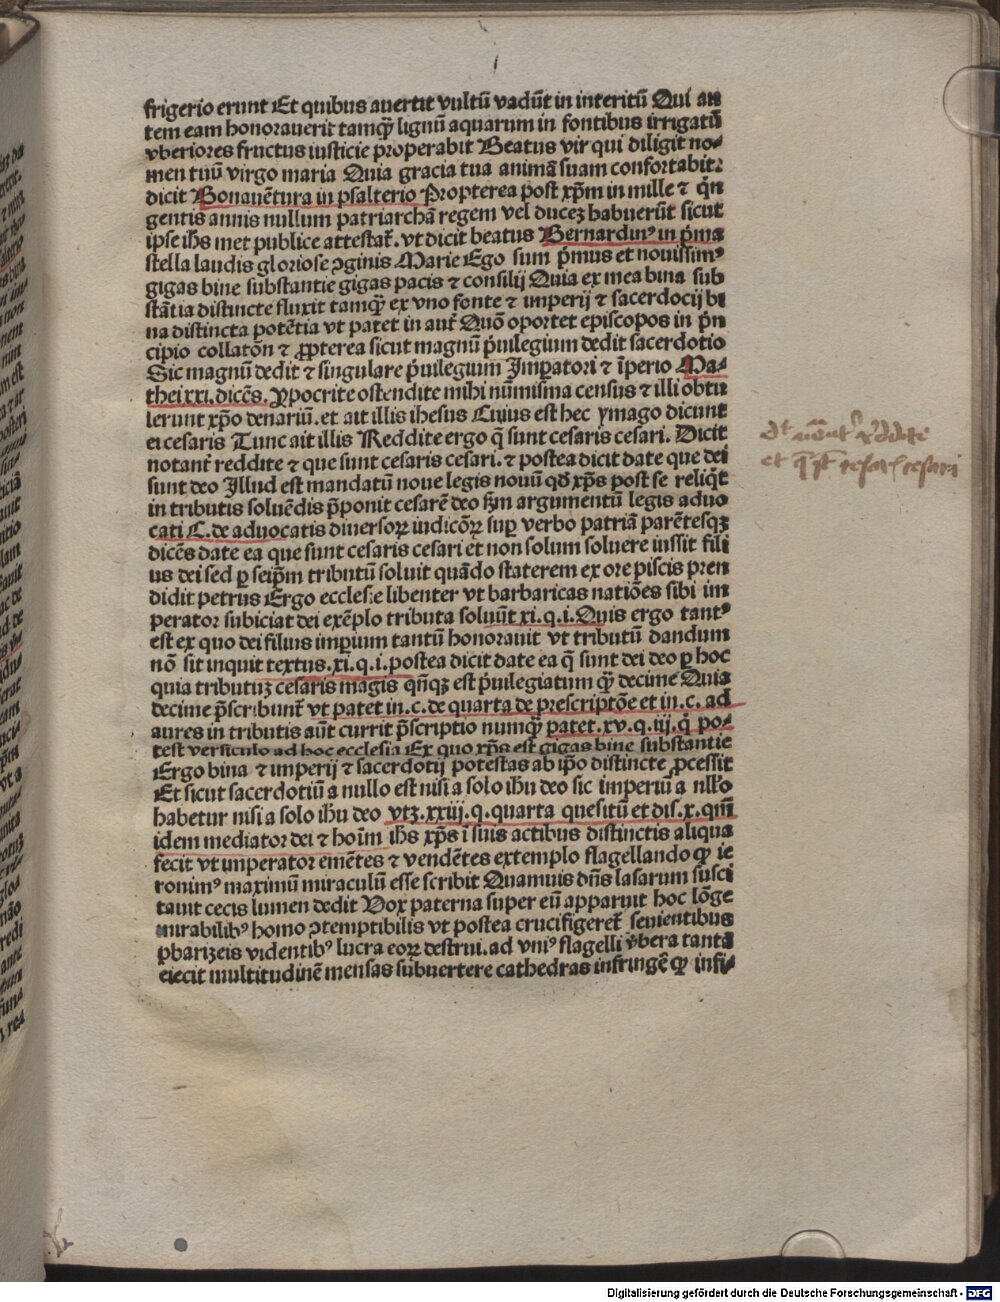 frigerio erunt Et quibus auertit vultū vadūt in interitū Qui au
tem eam honorauerit tamqȝ lignū aquarum in fontibus irrigatū
vberiores fructus iusticie properabit Beatus vir qui diligit no-
men tuū virgo maria Quia gracia tua animā suam confortabit:
dicit Bonauētura in psalterio Propterea post xp̄m in mille ⁊ qn̄
gentis annis nullum patriarchā regem vel duceȝ habuerūt sicut
ipse ih̄s met publice attestat̄. vt dicit beatus Bernardinꝰ in p̄ma
stella laudis gloriose ꝟginis Marie Ego sum p̄mus et nouissimꝰ
gigas bine substantie gigas pacis ⁊ consilij Quia ex mea bina sub
stātia distincte fluxit tamqȝ ex vno fonte ⁊ imperij ⁊ sacerdocij bi
na distincta potētia vt patet in aut̄ Quō oportet episcopos in p̄n
cipio collatōn ⁊ ꝓpterea sicut magnū p̄uilegium dedit sacerdotio
Sic magnū dedit ⁊ singulare p̄uilegium Imp̱atori ⁊ īperio Ma-
thei xxi. dicēs. Ypocrite ostendite mihi nūmisma census ⁊ illi obtu
lerunt xp̄o denariū. et ait illis ihesus Cuius est hec ymago dicunt
ei cesaris Tunc ait illis Reddite ergo q̄ sunt cesaris cesari. Dicit
notant̄ reddite ⁊ que sunt cesaris cesari. ⁊ postea dicit date que dei
sunt deo Illud est mandatū noue legis nouū qd̄ xp̄s post se reliq̄t
in tributis soluēdis p̄ponit cesarē deo s̄m argumentū legis aduo
cati C. de aduocatis diuersoꝝ iudicōꝝ sup̱ verbo patriā parētesqȝ
dicēs date ea que sunt cesaris cesari et non solum soluere iussit fili
us dei sed ꝑ seip̄m tributū soluit quādo staterem ex ore piscis pren
didit petrus Ergo ecclesie libenter vt barbaricas natiōes sibi im
perator subiciat dei exēplo tributa soluūt xi. q. i. Quis ergo tantꝰ
est ex quo dei filius imp̱ium tantū honorauit vt tributū dandum
nō sit inquit textus. xi. q. i. postea dicit date ea q̄ sunt dei deo ꝑ hoc
quia tributuȝ cesaris magis qn̄qȝ est p̄uilegiatum qȝ decime Quia
decime p̄scribunt̄ vt patet in. c. de quarta de prescriptōe et in. c. ad
aures in tributis aūt currit p̄scriptio numqȝ patet. xv. q. iij. q̄ po-
test versiculo ad hoc ecclesia Ex quo xp̄s est gigas bine substantie
Ergo bina ⁊ imperij ⁊ sacerdotij potestas ab ip̄o distincte ꝓcessit
Et sicut sacerdotiū a nullo est nisi a solo ih̄u deo sic imperiū a nll̄o
habetur nisi a solo ih̄u deo vtȝ. xxiij. q. quarta quesitū et dis. x. qm̄
idem mediator dei ⁊ hoīm ih̄s xp̄s ī suis actibus distinctis aliqua
fecit vt imperator emētes ⁊ vendētes extemplo flagellando qȝ ie
ronimꝰ maximū miraculū esse scribit Quamuis dn̄s lasarum susci
tauit cecis lumen dedit Vox paterna super eū apparuit hoc lōge
mirabilibꝰ homo ꝯtemptibilis vt postea crucifigeret̄ seuientibus
pharizeis videntibꝰ lucra eoꝝ destrui. ad vniꝰ flagelli v̄bera tantā
eiecit multitudinē mensas subuertere cathedras infringē qȝ infi-
et q̄ st̄ cesar cesari
Digitalisierung gefördert durch die Deutsche Forschungsgemeinschaft - DFG